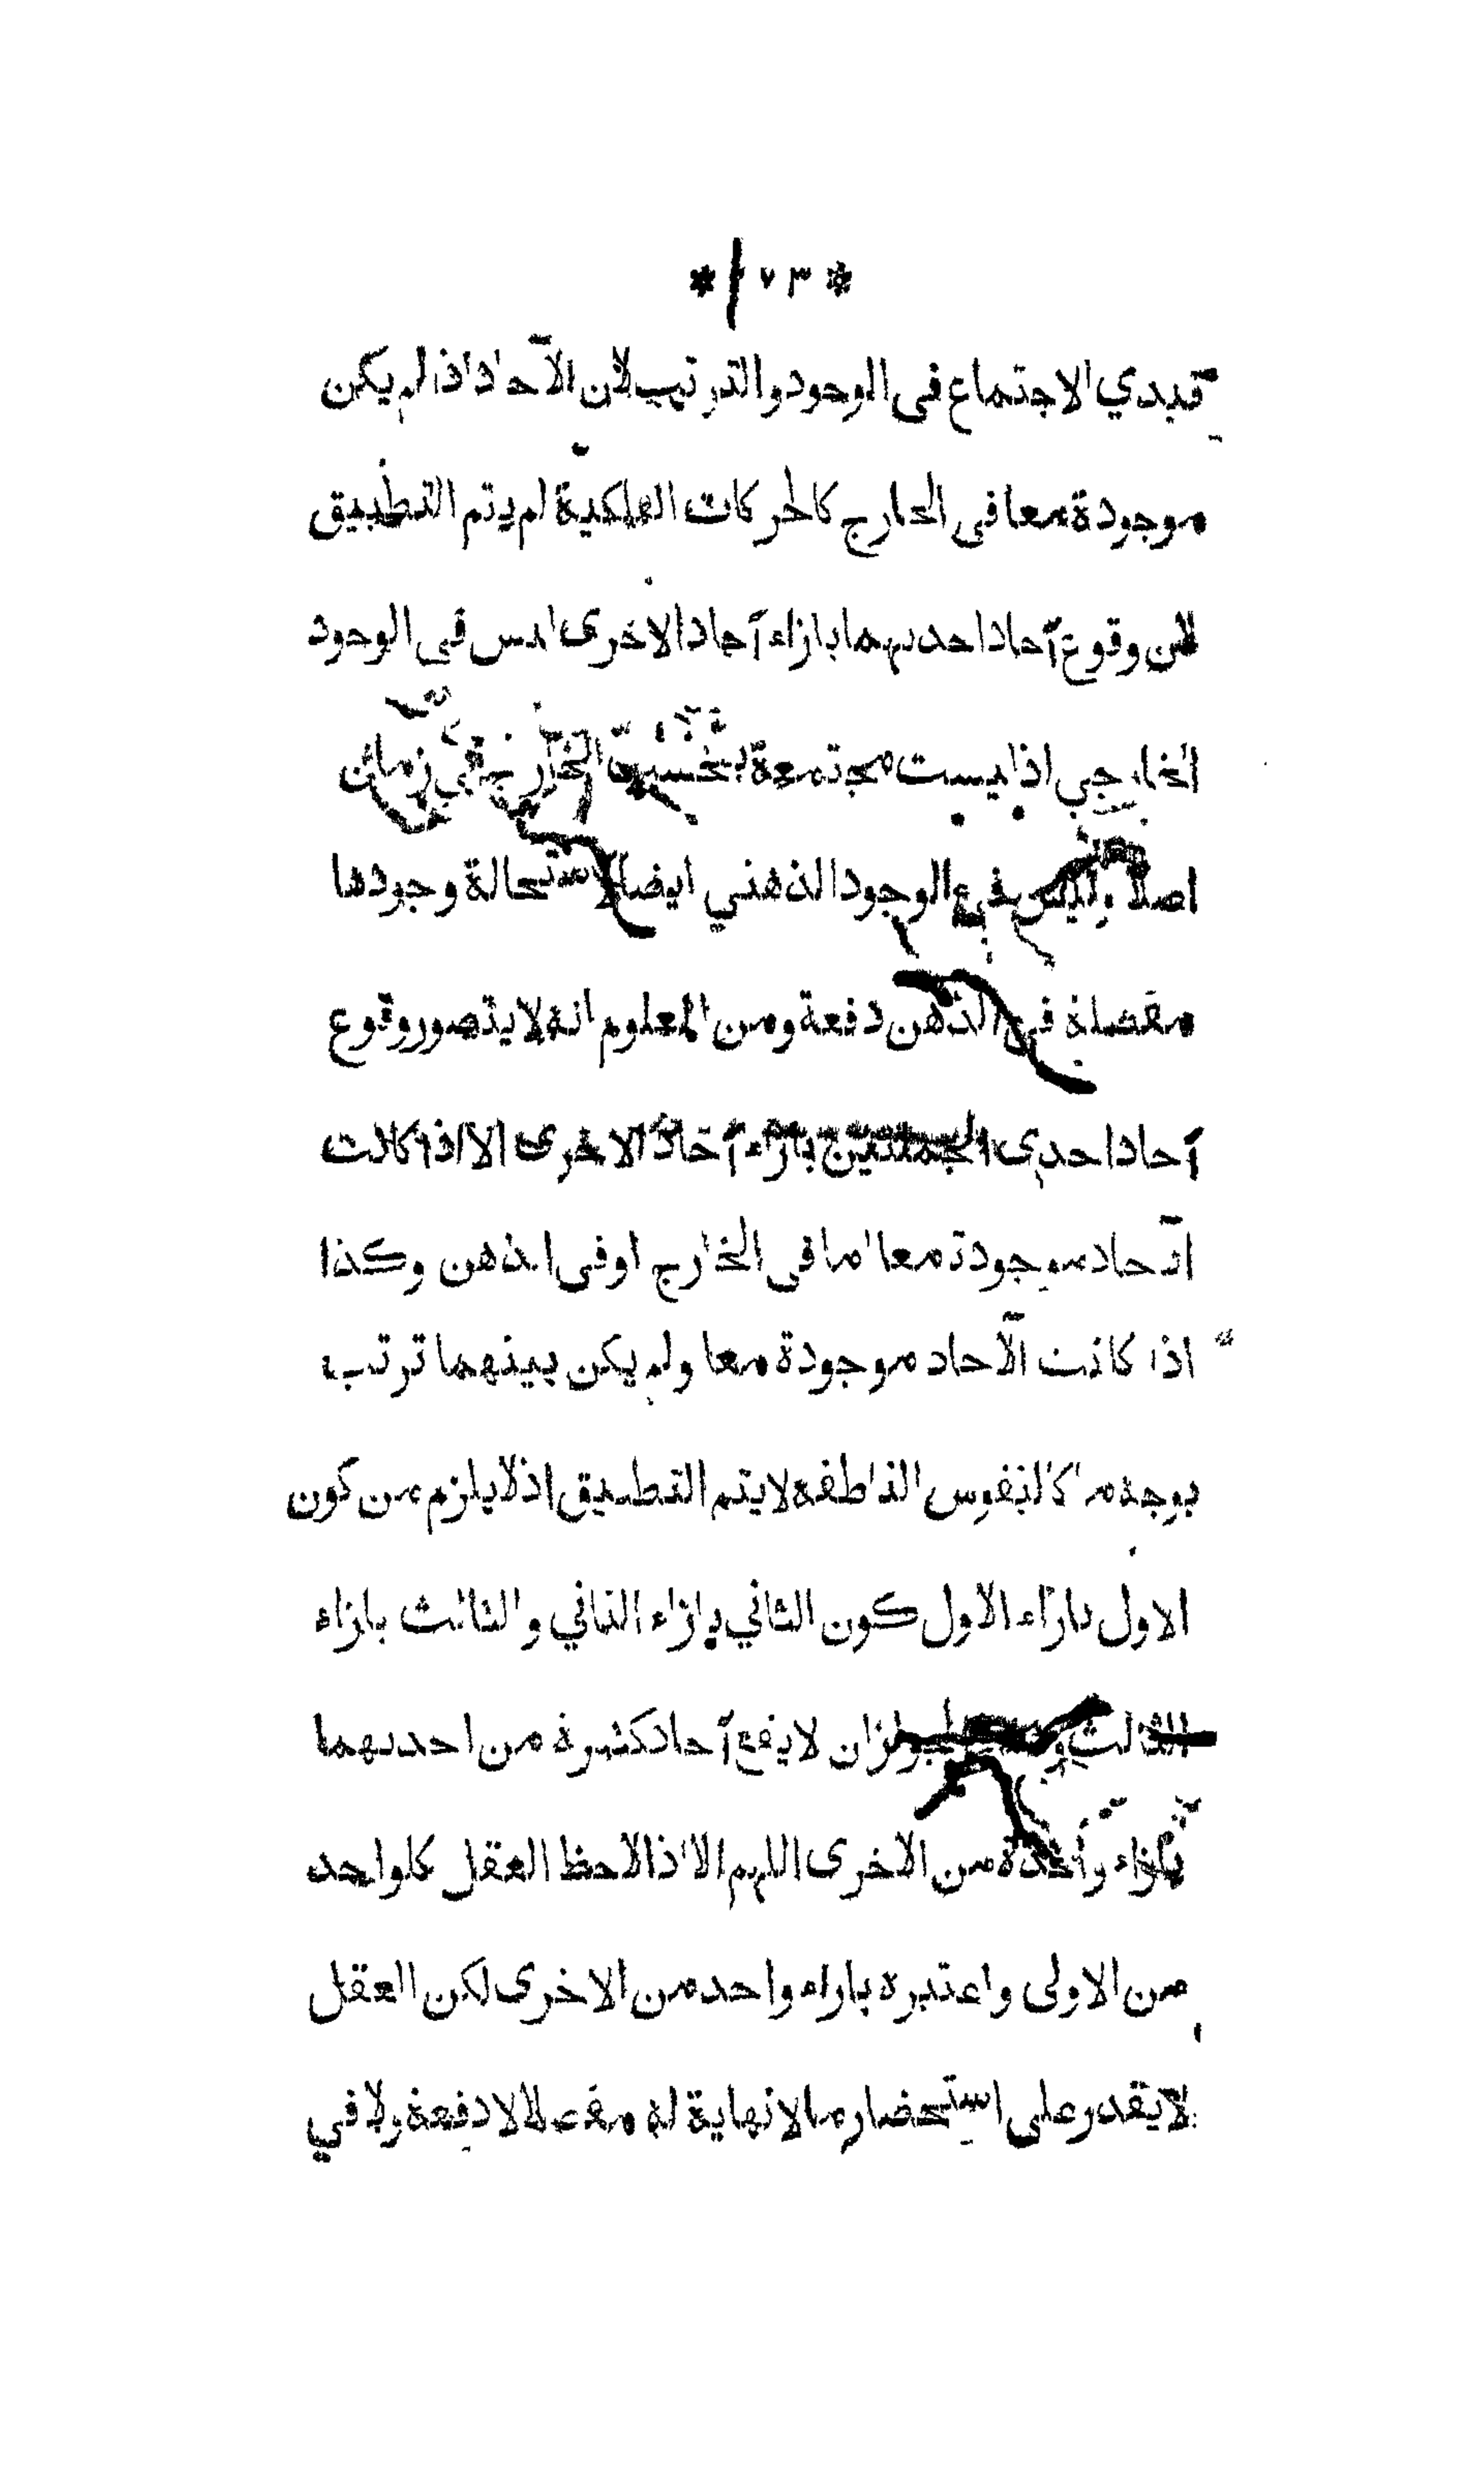 * ١٧٣ *
قيدي الاجتماع فى الوجود والترتيب لان الآحاد اذا لم يكن
موجودة معا فى الخارج كالحركات الفلكية لم يتم التطبيق
لان وقوع آحاد احديهما بازاء آحاد الاخرى ليس فى الوجود
الخارجي اذ ليست مجتمعة بحسب الخارج في زمان
اصلا وليس في الوجود الذهني ايضا لاستحالة وجودها
مفصلة فى الذهن دفعة ومن المعلوم انه لا يتصور وقوع
آحاد احدى الجملتين بازاء آحاد الاخرى الا اذا كانت
الآحاد موجودة معا اما فى الخارج او فى الذهن وكذا
اذا كانت الآحاد موجودة معا ولم يكن بينهما ترتب
بوجه ما كالنفوس الناطقة لا يتم التطبيق اذ لا يلزم من كون
الاول بازاء الاول كون الثاني بازاء الثاني والثالث بازاء
الثالث لجواز ان لا يقع آحاد كثيرة من احديهما
بازاء واحدة من الاخرى اللهم الا اذا لاحظ العقل كلواحد
من الاولى واعتبره بازاء واحد من الاخرى لكن العقل
لا يقدر على استحضار ما لا نهاية له مفصلا لا دفعة ولا في